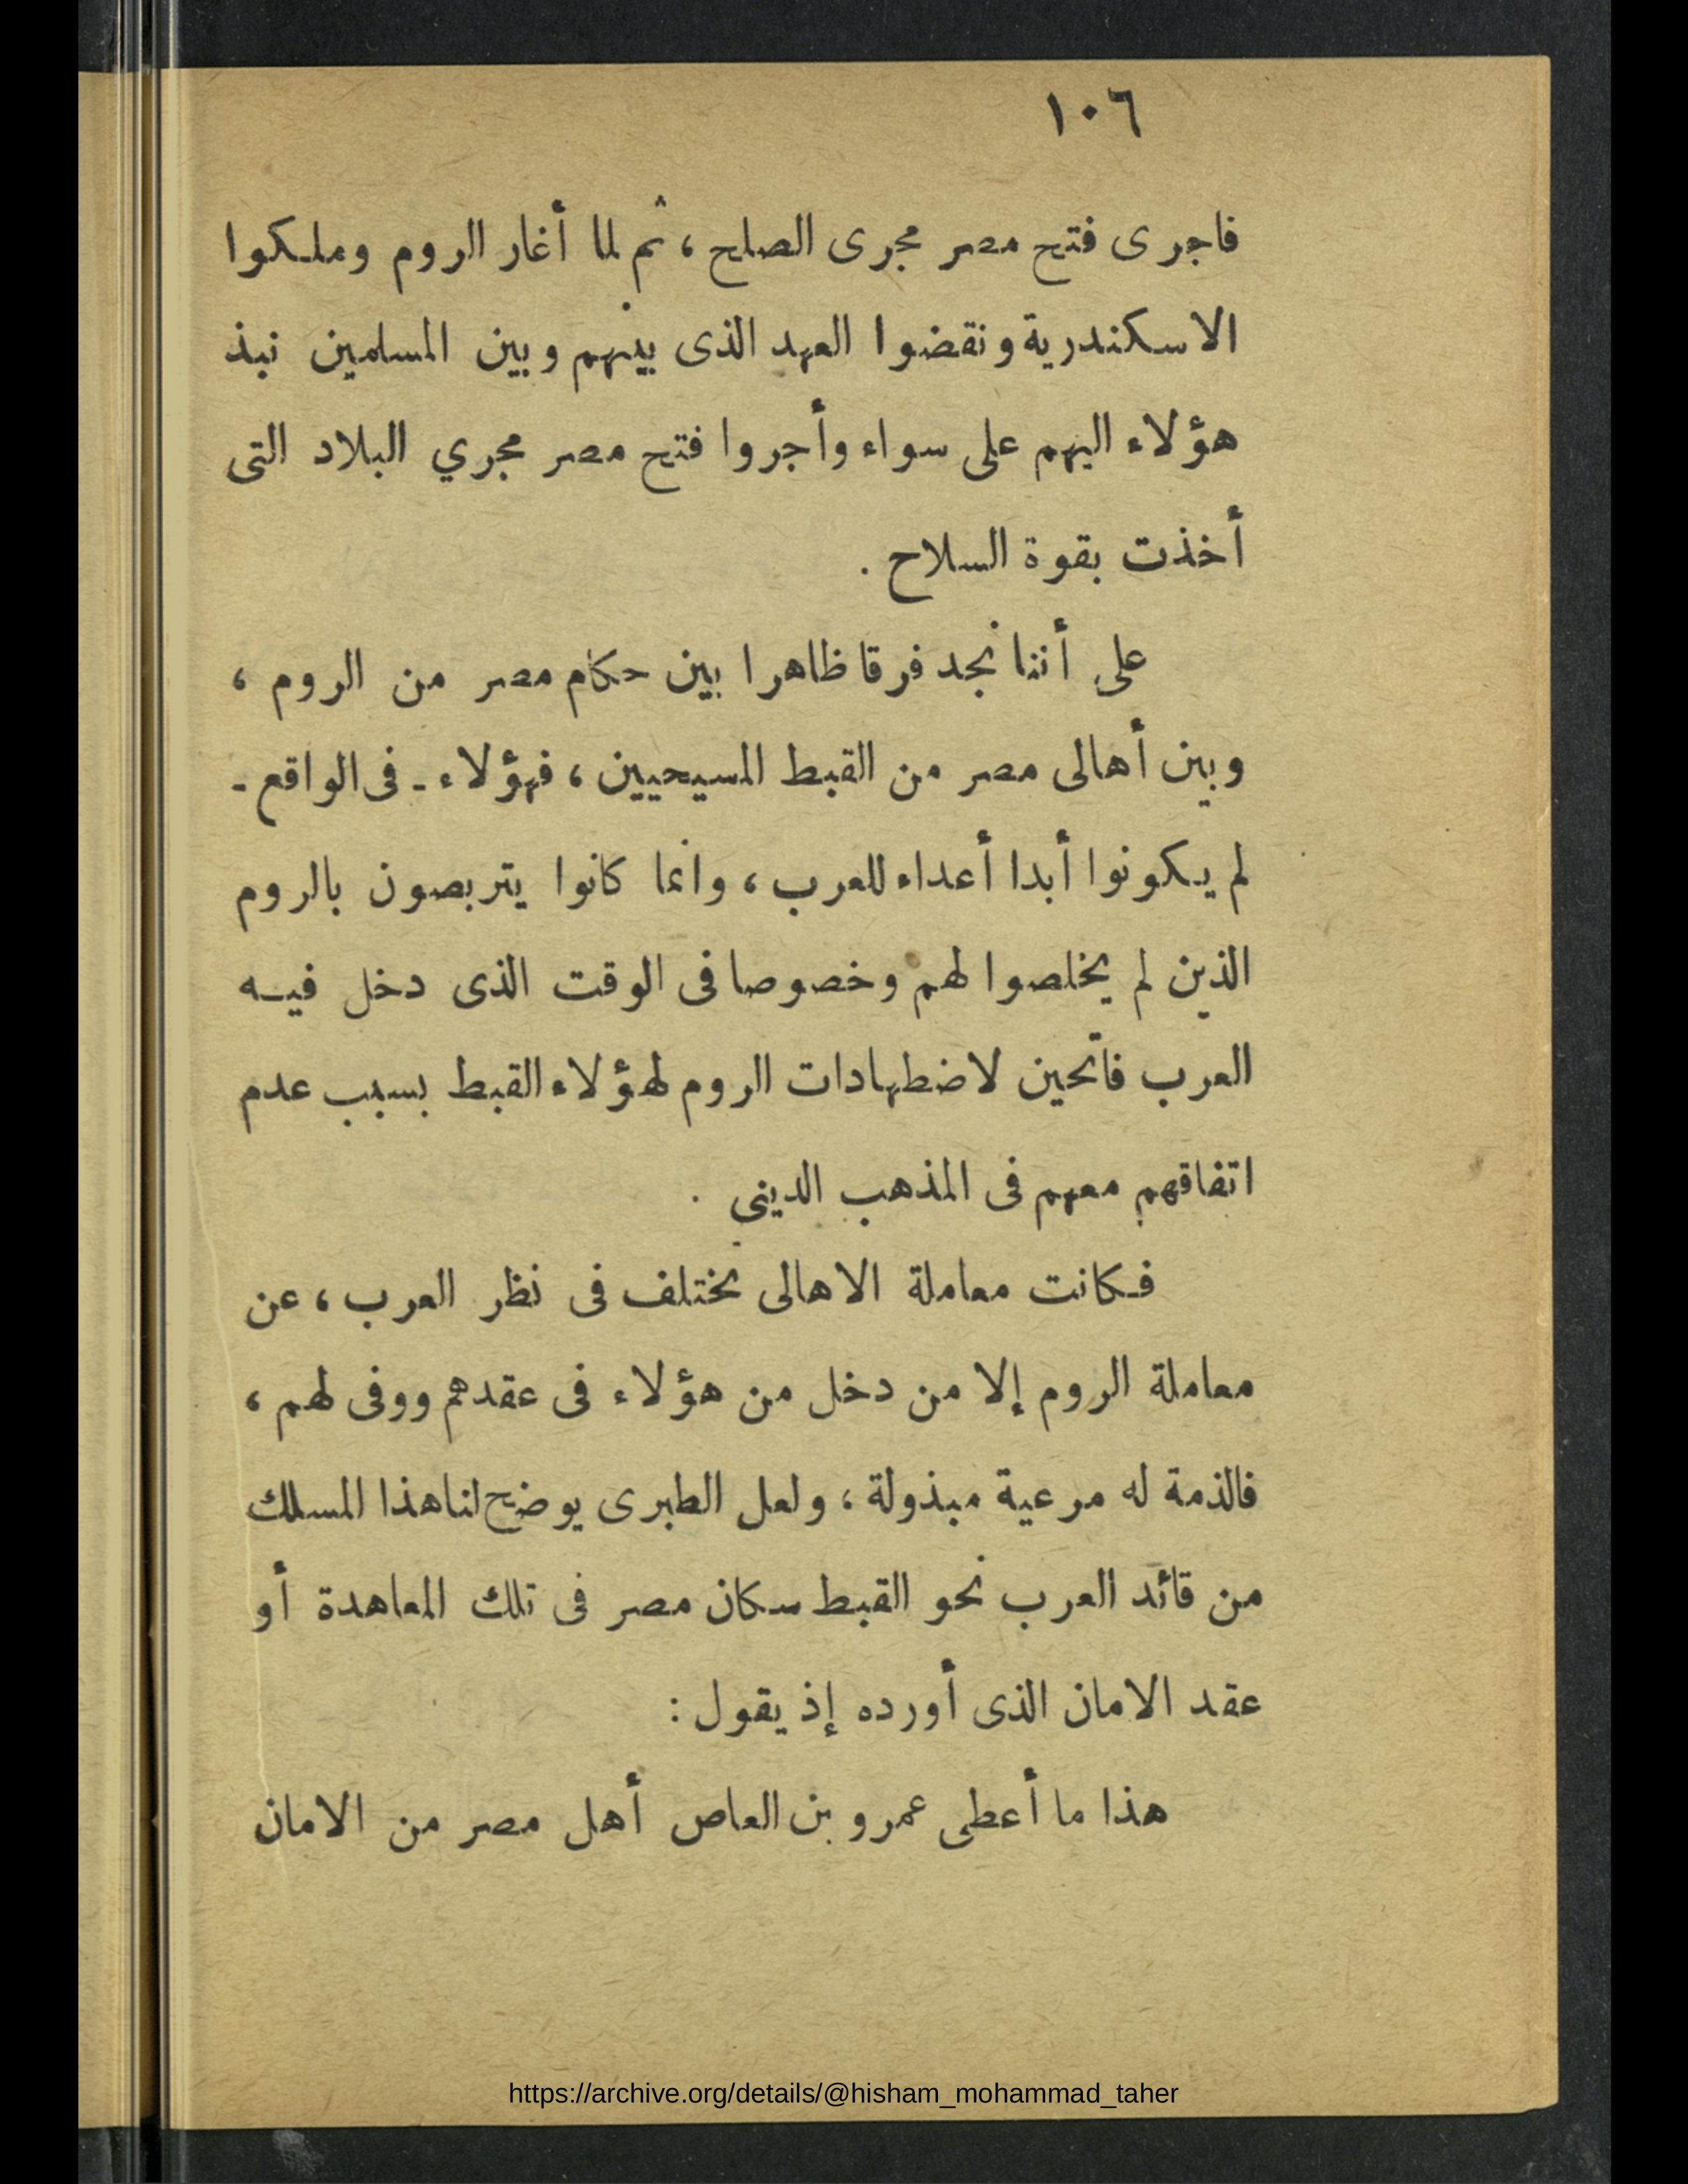 ١٠٦
فاجرى فتح مصر مجرى الصلح ، ثم لما أغار الروم وملكوا
الاسكندرية ونقضوا العهد الذى بينهم وبين المسلمين نبذ
هؤلاء اليهم على سواء وأجروا فتح مصر مجري البلاد التى
أخذت بقوة السلاح .
على أننا نجد فرقا ظاهرا بين حكام مصر من الروم ،
وبين أهالى مصر من القبط المسيحيين ، فهؤلاء - فى الواقع -
لم يكونوا أبدا أعداء للعرب ، وانما كانوا يتربصون بالروم
الذين لم يخلصوا لهم وخصوصا فى الوقت الذى دخل فيه
العرب فاتحين لاضطهادات الروم لهؤلاء القبط بسبب عدم
اتفاقهم معهم فى المذهب الدينى .
فكانت معاملة الاهالى تختلف فى نظر العرب ، عن
معاملة الروم إلا من دخل من هؤلاء فى عقدهم ووفى لهم ،
فالذمة له مرعية مبذولة ، ولعل الطبرى يوضح لنا هذا المسلك
من قائد العرب نحو القبط سكان مصر فى تلك المعاهدة أو
عقد الامان الذى أورده إذ يقول :
هذا ما أعطى عمرو بن العاص أهل مصر من الامان
https://archive.org/details/@hisham_mohammad_taher